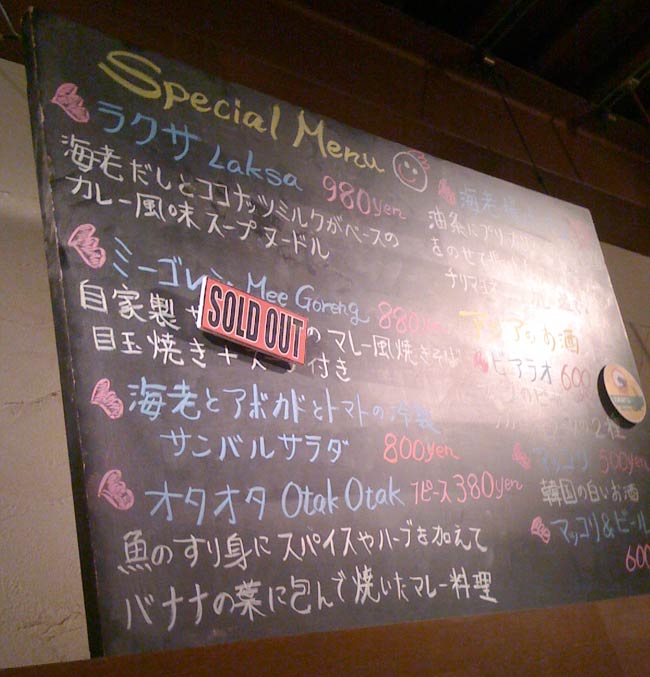 Special Menu
ラクサ Laksa 980yen
海老だしとココナッツミルクがベースの
カレー風味スープヌードル
ミーゴレン Mee Goreng 880yen
SOLD OUT
自家製 のマレー風焼きそば
目玉焼き 付き
海老とアボカドとトマトの冷製
サンバルサラダ 800yen
オタオタ Otak Otak 1ピース 380yen
魚のすり身にスパイスやハーブを加えて
バナナの葉に包んで焼いたマレー料理
海老
油条に
をのせて
アジアのお酒
ビアラオ 600
の2種
マッコリ 500yen
韓国の白いお酒
マッコリ&ビール
600